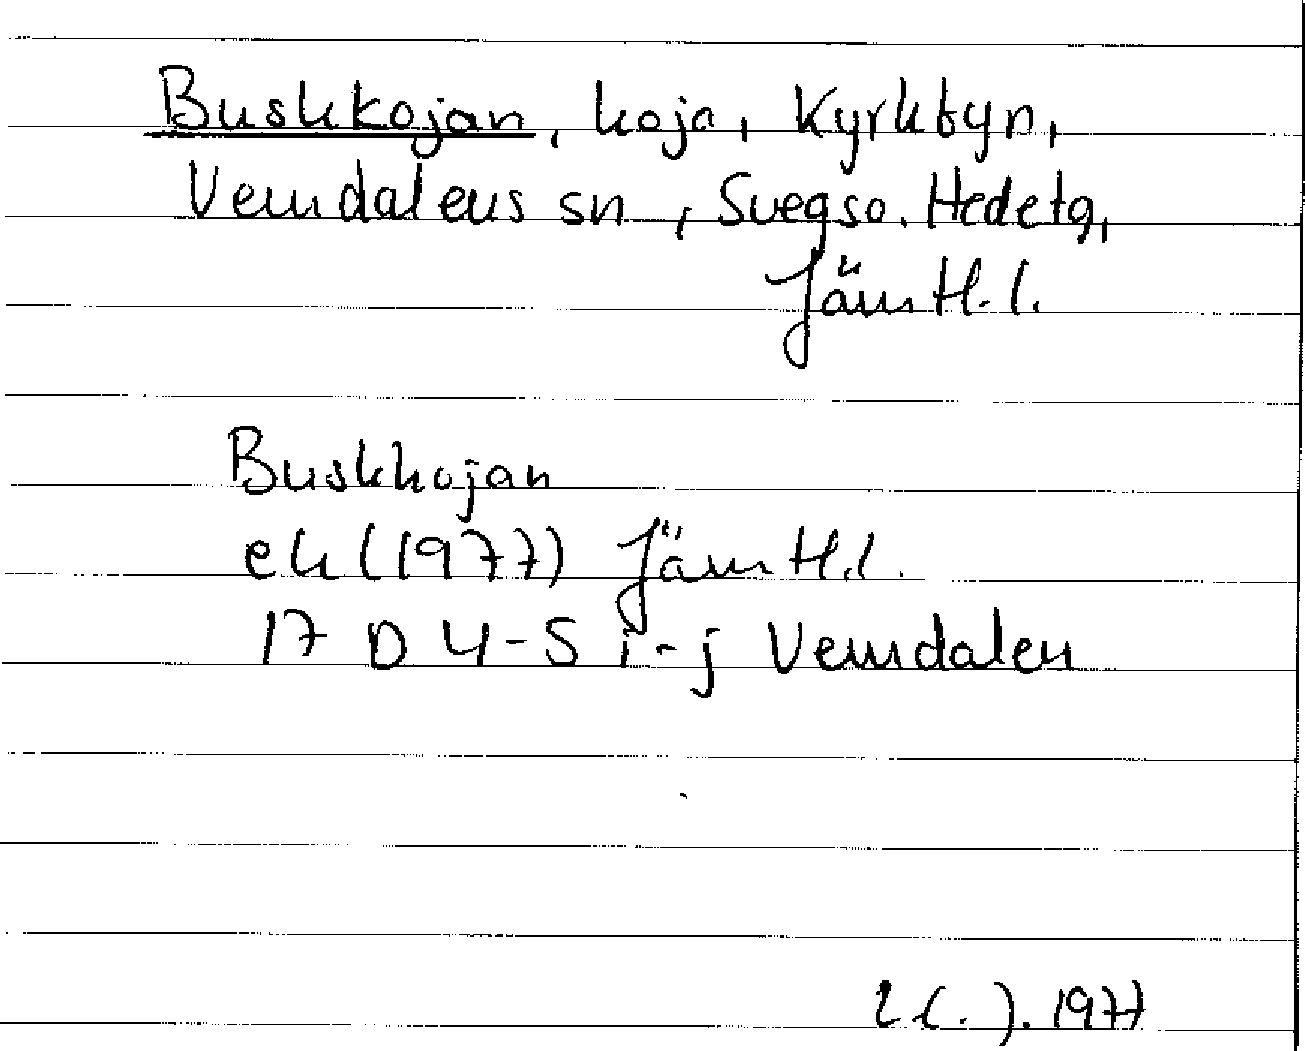 Buskkojan, koja, Kyrkbyn,
Vemdalens sn, Svegs o. Hede tg,
Jämtl. l.
Buskkojan
ek (1977) Jämtl. l.
17 D 4-5 i-j Vemdalen
1977